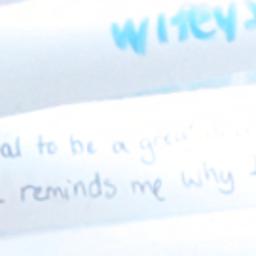 wifey
al to be a great
reminds me why I